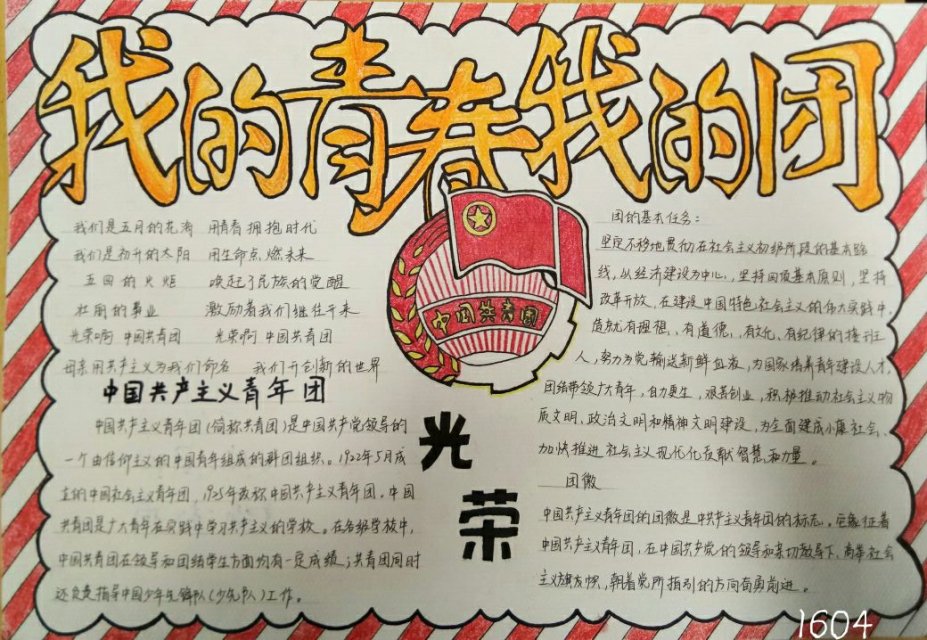 我的青春我的团
我们是五月的花海 用青春拥抱时代
我们是初升的太阳 用生命点燃未来
五四的火炬 唤起了民族的觉醒
壮丽的事业 激励着我们继往开来
光荣啊 中国共青团 光荣啊 中国共青团
母亲用共产主义为我们命名 我们开创新的世界
中国共产主义青年团
中国共产主义青年团(简称共青团)是中国共产党领导的
一个由信仰主义的中国青年组成的群团组织。1922年5月成
立的中国社会主义青年团,1925年改称中国共产主义青年团。中国
共青团是广大青年在实践中学习共产主义的学校。在各级学校中,
中国共青团在领导和团结学生方面均有一定成绩;共青团同时
还负责指导中国少年先锋队(少先队)工作。
中国共青团
光
荣
团的基本任务:
坚定不移地贯彻在社会主义初级阶段的基本路
线,以经济建设为中心,坚持四项基本原则,坚持
改革开放,在建设中国特色社会主义的伟大实践中,
造就有理想、有道德、有文化、有纪律的接班
人,努力为党输送新鲜血液,为国家培养青年建设人才,
团结带领广大青年,自力更生,艰苦创业,积极推动社会主义物
质文明、政治文明和精神文明建设,为全面建成小康社会、
加快推进社会主义现代化贡献智慧和力量。
团徽
中国共产主义青年团的团徽是中共产主义青年团的标志。它象征着
中国共产主义青年团,在中国共产党的领导和亲切教导下,高举社会
主义旗帜,朝着党所指引的方向奋勇前进。
1604